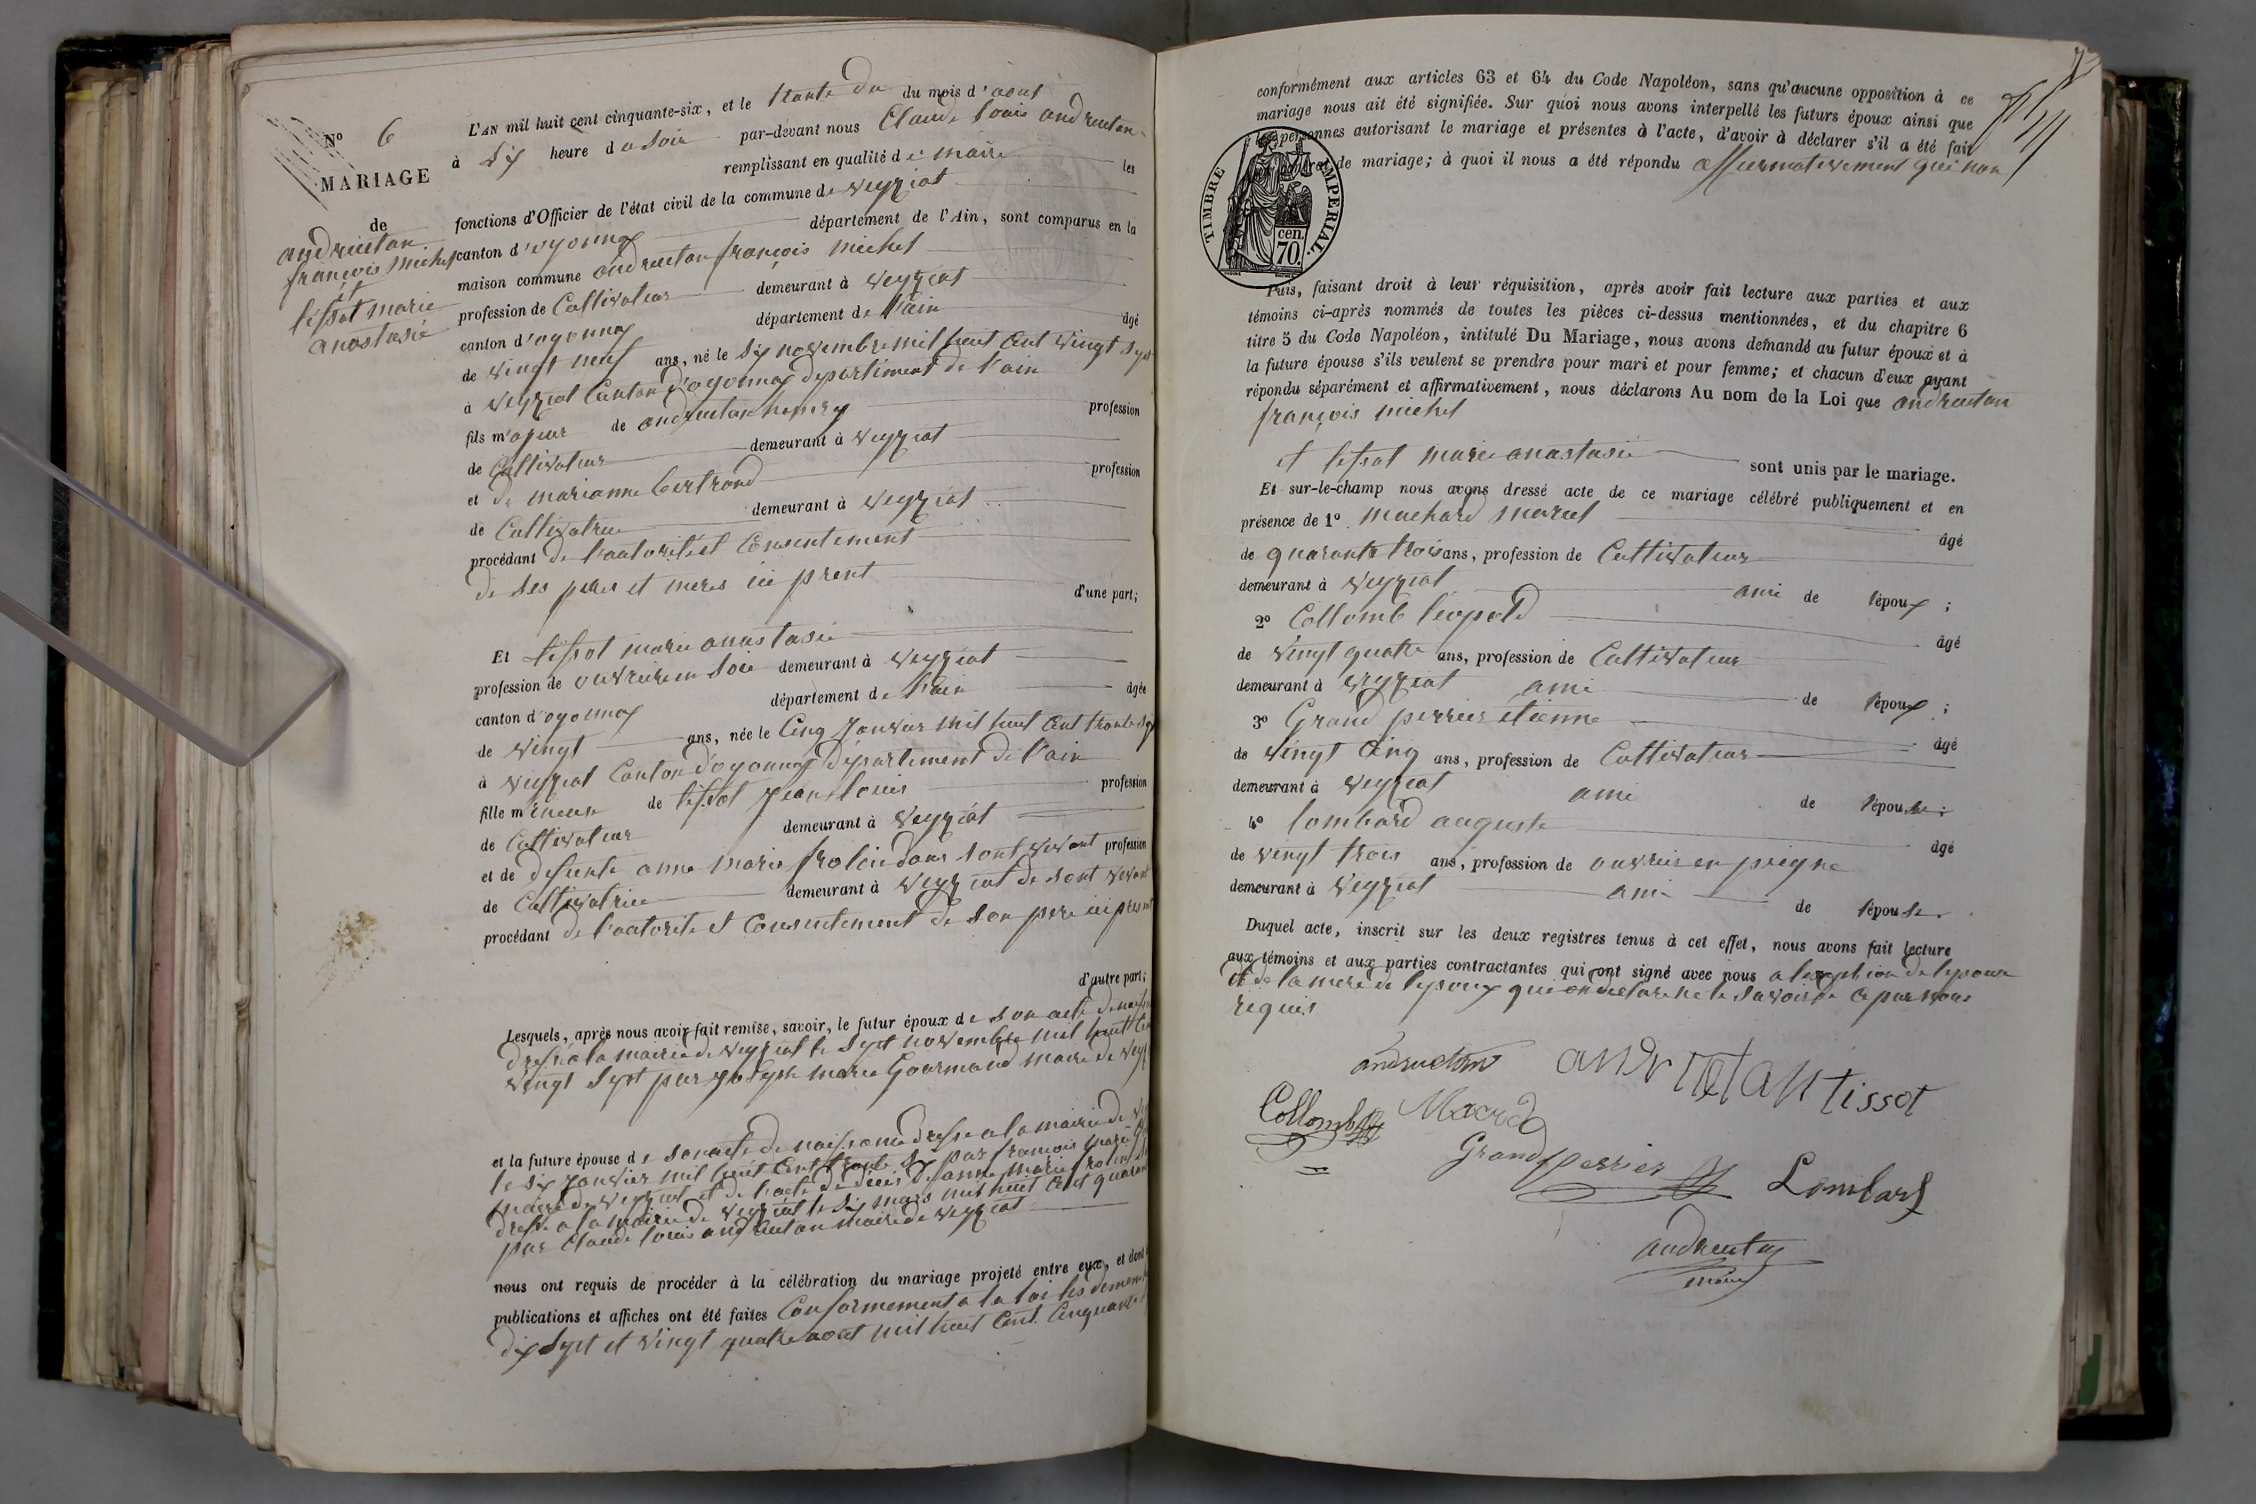 N° 6
MARIAGE
de
andrueton
françois michel
et
tissot marie
anastasie
L'AN mil huit cent cinquante-six, et le trente du du mois d'aout
à six heure du soir par-devant nous Claude Louis andrueton
remplissant en qualité de maire les
fonctions d'Officier de l'état civil de la commune de veyziat
canton d'oyonnax département de l'Ain, sont comparus en la
maison commune andrueton françois michel
profession de Cultivateur demeurant à veyziat
canton d'oyonnax département de l'ain âgé
de vingt neuf ans, né le six novembre mil huit cent vingt sept
à veyziat Canton d'oyonnax département de l'ain
fils majeur de andrueton henry profession
de Cultivateur demeurant à veyziat
et de marianne bertrand profession
de Cultivatrice demeurant à veyziat
procédant de l'autorité et Consentement
de ses peres et meres ici prent d'une part;
Et tissot marie anastasie
profession de ouvriere en soie demeurant à veyziat
canton d'oyonnax département de l'ain âgée
de vingt ans, née le Cinq Janvier mil huit cent trente six
à veyziat Canton d'oyonnax département de l'ain
fille mineure de tissot jean louis profession
de Cultivateur demeurant à veyziat
et de defunte anne marie frolin dans sont vivant profession
de Cultivatrice demeurant à veyziat de sont vivant
procédant de l'autorite et Consentement de son pere ici present
d'autre part;
Lesquels, après nous avoir fait remise, savoir, le futur époux de son acte de
dressé a la mairie de veyziat le sept novembre mil huit
vingt sept par joseph marie Gourmand maire de
et la future épouse de son acte de naissance dressé a la mairie de
le six janvier mil huit cent trente six par françois marie
maire de veyziat et de l'acte de décès de anne marie frolin
dressé a la mairie de veyziat le six mars mil huit cent
par Claude louis andrueton maire de veyziat
nous ont requis de procéder à la célébration du mariage projeté entre eux, et dont
publications et affiches ont été faites Conformement a la loi les
dix sept et vingt quatre aout mil huit Cent Cinquante
conformément aux articles 63 et 64 du Code Napoléon, sans qu'aucune opposition à ce
mariage nous ait été signifiée. Sur quoi nous avons interpellé les futurs époux ainsi que
les personnes autorisant le mariage et présentes à l'acte, d'avoir à déclarer s'il a été fait
contrat de mariage; à quoi il nous a été répondu affirmativement que non
TIMBRE IMPERIAL.
cen.
70.
Puis, faisant droit à leur réquisition, après avoir fait lecture aux parties et aux
témoins ci-après nommés de toutes les pièces ci-dessus mentionnées, et du chapitre 6
titre 5 du Code Napoléon, intitulé Du Mariage, nous avons demandé au futur époux et à
la future épouse s'ils veulent se prendre pour mari et pour femme; et chacun d'eux ayant
répondu séparément et affirmativement, nous déclarons Au nom de la Loi que andrueton
françois michel
et tissot marie anastasie sont unis par le mariage.
Et sur-le-champ nous avons dressé acte de ce mariage célébré publiquement et en
présence de 1° machard marcel âgé
de quarante trois ans, profession de Cultivateur
demeurant à veyziat ami de l'époux ;
2° Collomb léopold âgé
de vingt quatre ans, profession de Cultivateur
demeurant à veyziat ami de l'époux ;
3° Grand perrier étienne âgé
de vingt cinq ans, profession de Cultivateur
demeurant à veyziat ami de l'épouse ;
4° lombard auguste âgé
de vingt trois ans, profession de ouvrier en peigne
demeurant à veyziat ami de l'épouse.
Duquel acte, inscrit sur les deux registres tenus à cet effet, nous avons fait lecture
aux témoins et aux parties contractantes qui ont signé avec nous a l'exeption de l'epouse
et de la mere de l'epoux qui on déclaré ne le savoir de ce par nous
requis
andrueton andruetan tissot
Collomb
Grand perrier Lombard
andrueton
maire